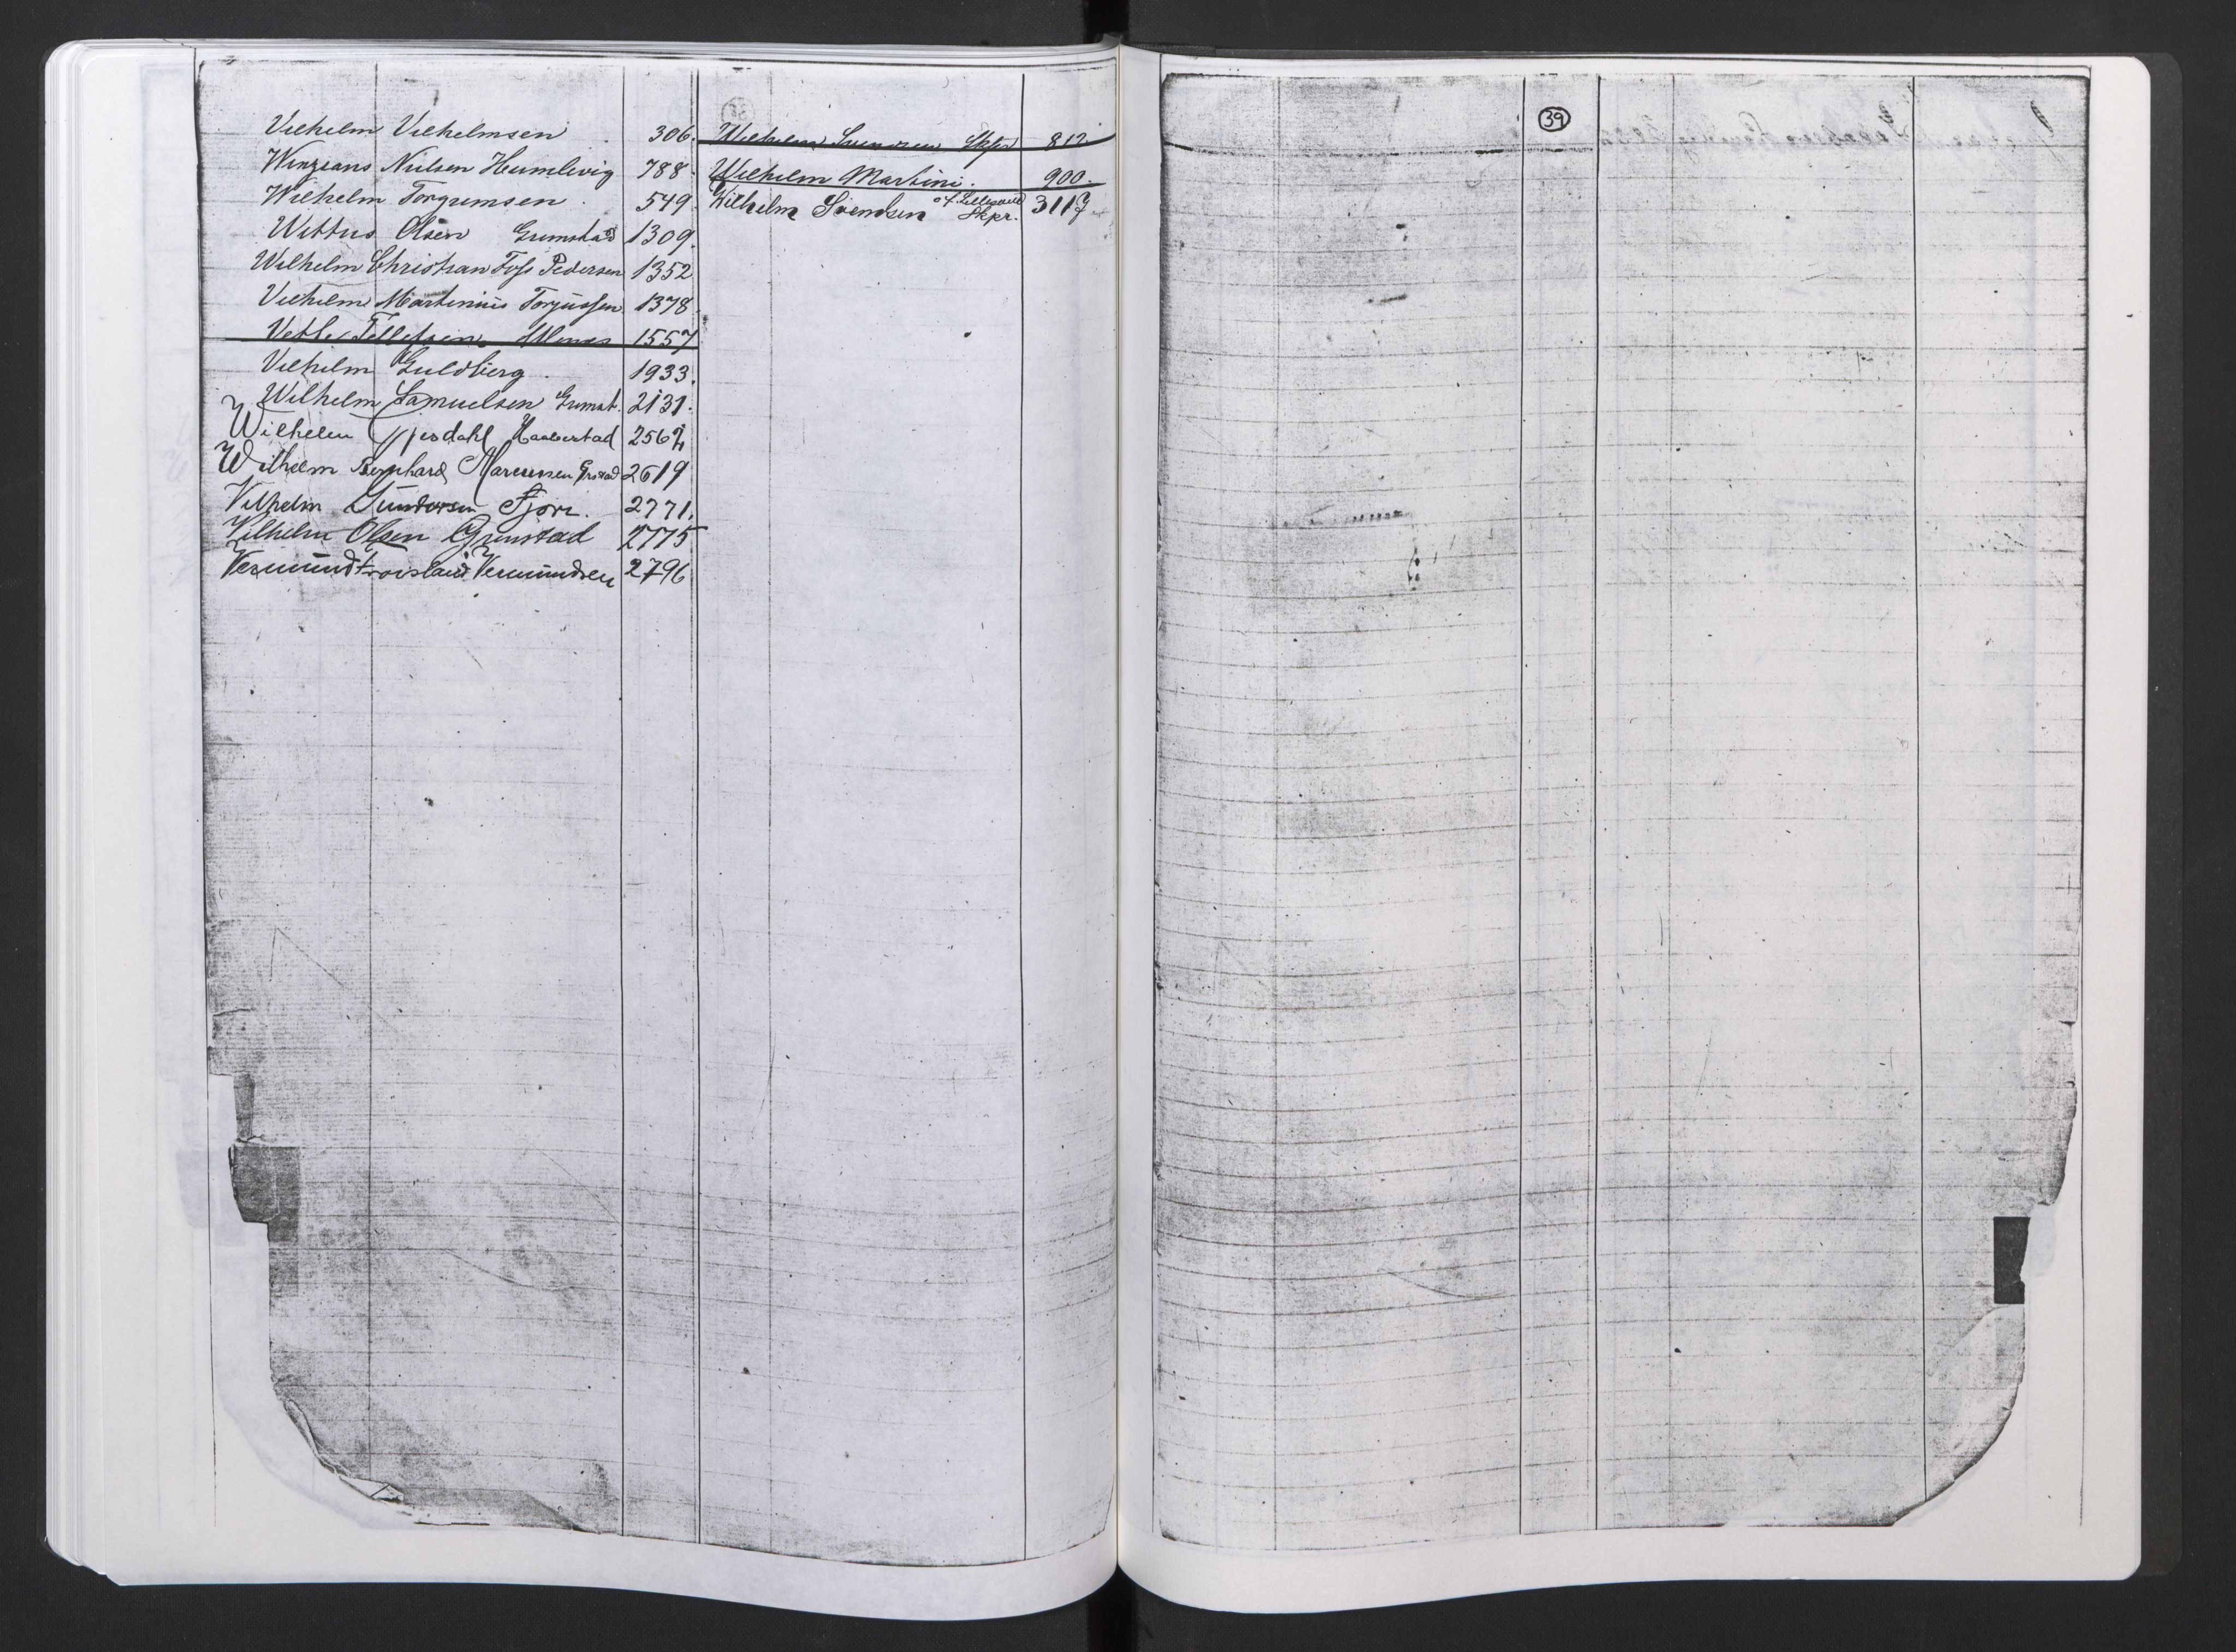 Vilhelm Vilhelmsen 306.
Nielsen Humlevig 788.
Wilhelm Torgumsen 549.
Wittus Olsen Grimstad 1309.
Wilhelm Christian Foss Pedersen 1352
Vilhelm Martinius Torjussen 1378
Vetle Tellefsen 1557
Vilhelm Guldberg. 1933.
Wilhelm Samuelsen Grimst. 2131.
Wilhelm Gjesdahl 2562
Wilhelm Bernhard Marcussen Grstad 2619
Vilhelm Gundersen Fjære. 2771.
Vilhelm Olsen Grimstad 2775
Vermund Vermundsen 2796
Wilhelm Svendsen Skpr 812
Wilhelm Martini. 900.
Wilhelm Svendsen af Lillesand Skpr. 3117
39